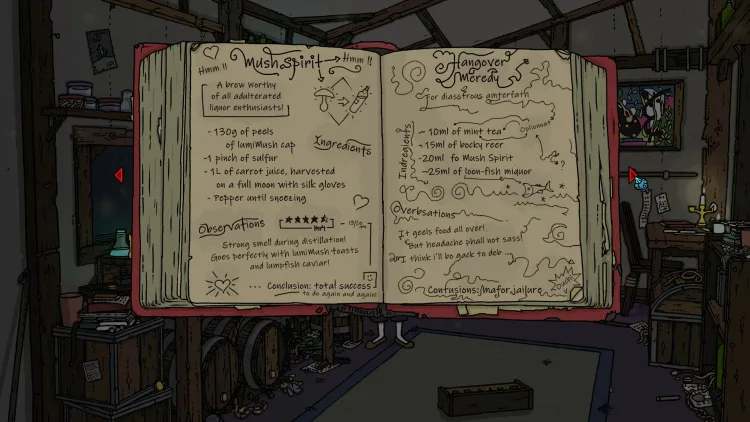 Hmm !!
MushSpirit
Hmm !!
A brew worthy
of all adulterated
liquor enthusiasts!
Ingredients
- 130g of peels
of lumiMush cap
- 1 pinch of sulfur
- 1L of carrot juice, harvested
on a full moon with silk gloves
- Pepper until sneezing
Observations
Strong smell during distillation!
Goes perfectly with lumiMush toasts
and lumpfish caviar!
... Conclusion: total success
to do again and again!
Hangover
Meredy
for diasstrous amterfath
Indregients
~ 10ml of mint tea
Oplionnat
~ 15ml of bocky reer
-20ml fo Mush Spirit
~25ml of loon-fish miquor
?
Overbsations
It geels food all over!
But headache phall not sass!
I think i'll be gack to deb ...
Contusions: mafor jailure
Ouch!